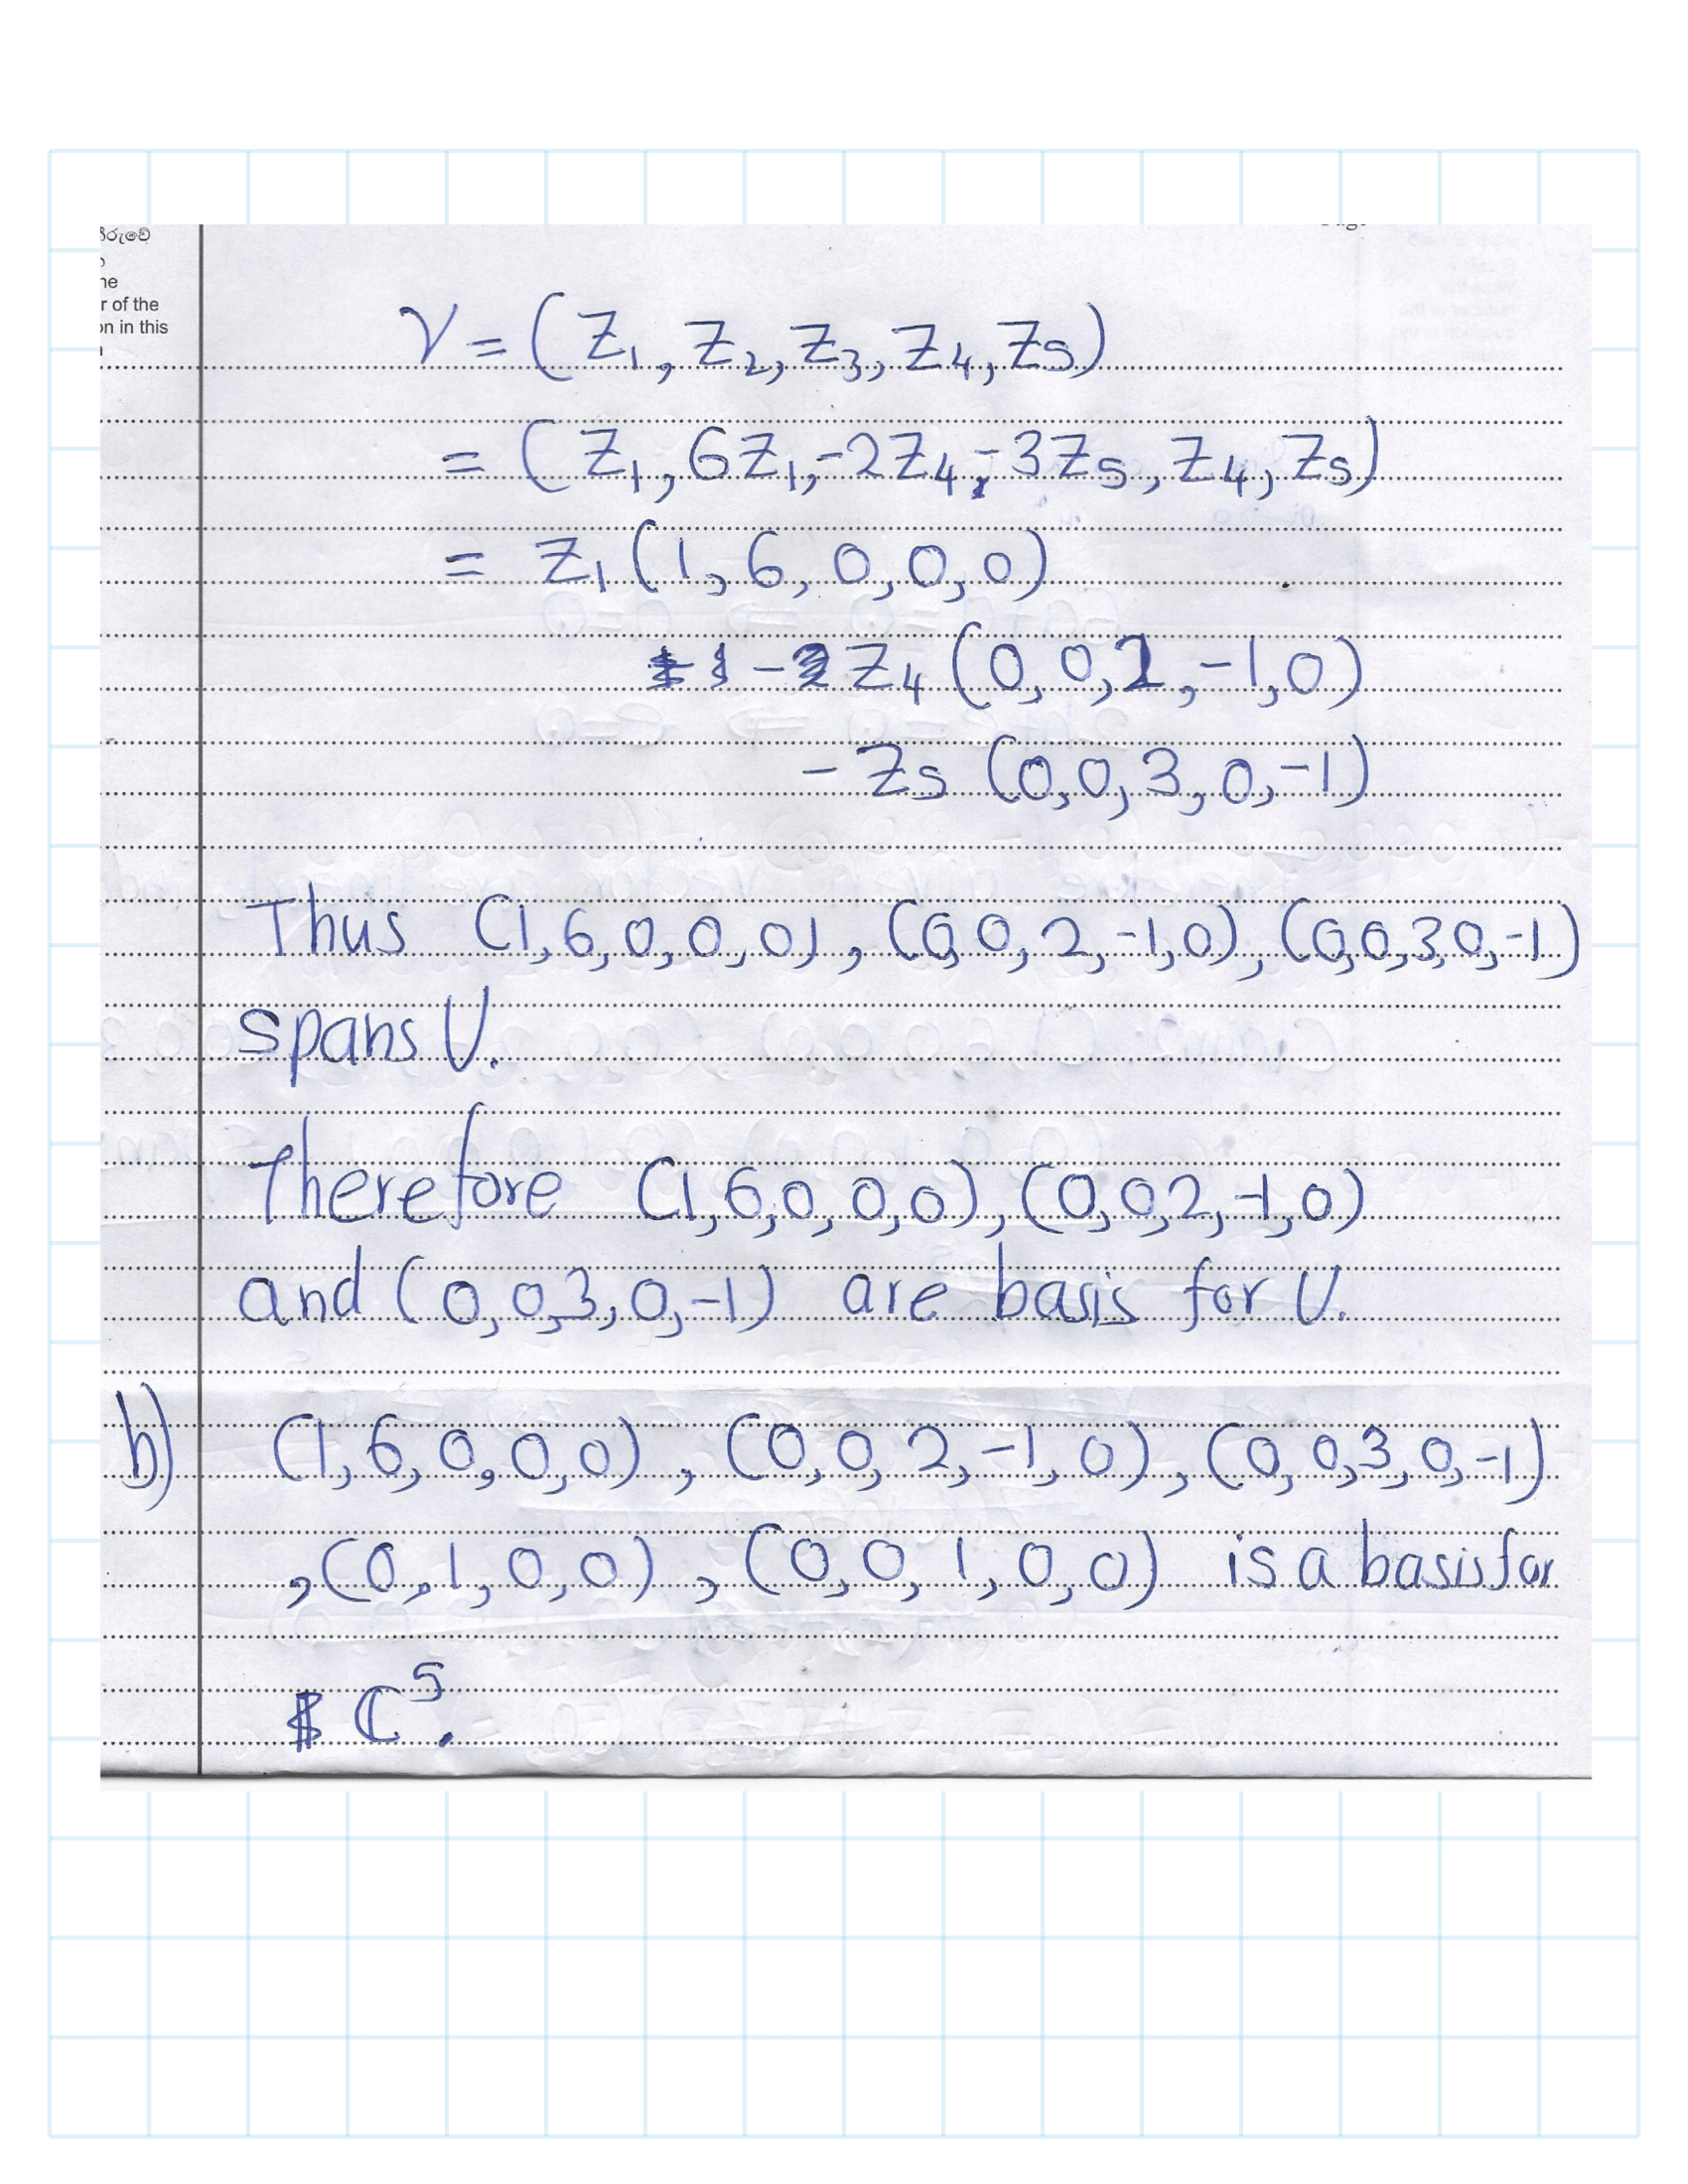 he
r of the
on in this
V = (Z1, Z2, Z3, Z4, Z5)
= (Z1, 6Z1, -2Z4, -3Z5, Z4, Z5)
= Z1 (1, 6, 0, 0, 0)
- Z4 (0, 0, 2, -1, 0)
- Z5 (0, 0, 3, 0, -1)
Thus (1, 6, 0, 0, 0), (0, 0, 2, -1, 0), (0, 0, 3, 0, -1)
spans U.
Therefore (1, 6, 0, 0, 0), (0, 0, 2, -1, 0)
and (0, 0, 3, 0, -1) are basis for U.
b) (1, 6, 0, 0, 0), (0, 0, 2, -1, 0), (0, 0, 3, 0, -1)
, (0, 1, 0, 0), (0, 0, 1, 0, 0) is a basis for
ℂ⁵.